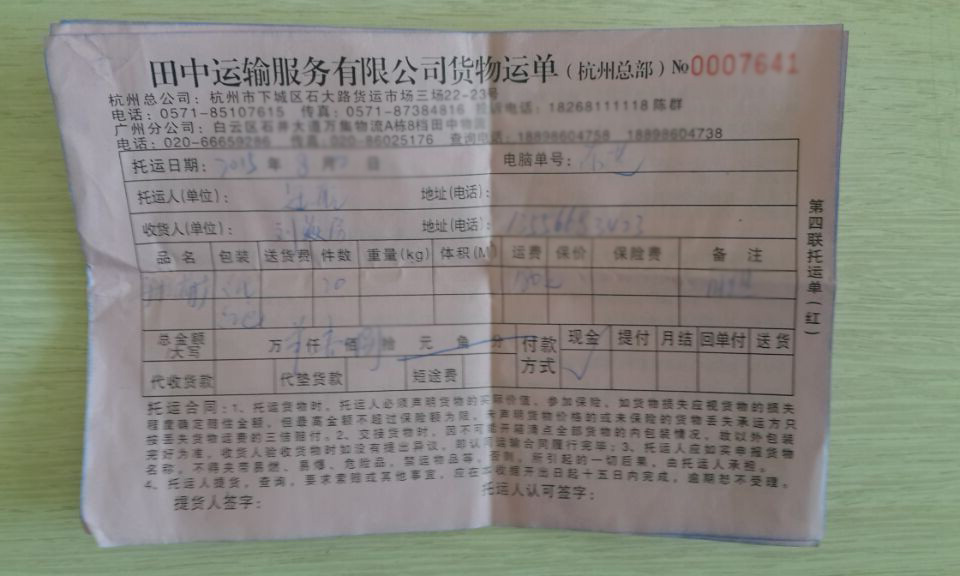 田中运输服务有限公司货物运单（杭州总部）No 0007641
杭州总公司：杭州市下城区石大路货运市场三场22-23号
电话：0571-85107615 传真：0571-87384816 电话：18268111118 陈群
广州分公司：白云区石井大道万集物流A栋8档田中物流
电话：020-66659286 传真：020-86025176 查询电话：18898604758 18898604738
托运日期：2015年 月 日 电脑单号：
托运人(单位)： 地址(电话)：
收货人(单位)： 地址(电话)：
品名 包装 送货费 件数 重量(kg) 体积(M 运费 保价 保险费 备注
20
总金额/大写 万 仟 佰 拾 元 角 分 付款方式 现金 提付 月结 回单付 送货
代收货款 代垫货款 短途费 ✓
托运合同：1、托运货物时，托运人必须声明货物的实际价值，参加保险。如货物损失应视货物的损失
程度确定赔性金额，但最高金额不超过保险额为限。未声明货物价格的或未保险的货物丢失承运方只
按丢失货物运费的三倍赔付。2、交接货物时，因不可能开箱清点全部货物的内包装情况，故以外包装
完好为准，收货人验收货物时如没有提出异议，即认同运输合同履行完毕；3、托运人应如实申报货物
名称，不得夹带易燃、易爆、危险品，禁运物品等。否则，所引起的一切后果，由托运人承担。
4、托运人提货，查询，要求索赔或其他事宜，应在本收据开出日起十五日内完成，逾期恕不受理。
提货人签字： 托运人认可签字：
第四联托运单(红)